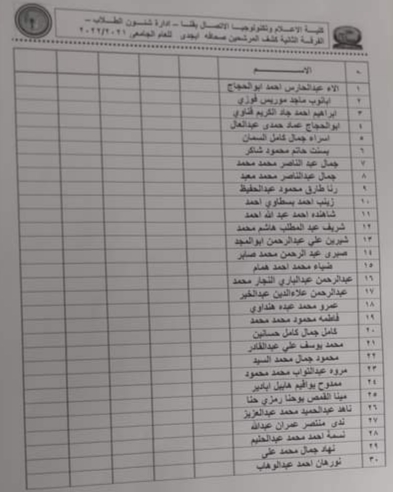 كلية الاعلام وتكنولوجيا الاتصال بقنا - ادارة شئون الطلاب -
الفرقة الثانية كشف المرشحين صحافه ابجدى للعام الجامعى ٢٠٢٢/٢٠٢١
م الاســـم
١ الاء عبدالحارس احمد ابوالحجاج
٢ ابانوب ماجد موريس فوزي
٣ ابراهيم احمد جاد الكريم قناوي
٤ ابوالحجاج عماد حمدى عبدالعال
٥ اسراء جمال كامل السمان
٦ بسنت حاتم محمود شاكر
٧ جمال عبد الناصر محمد محمد
٨ جمال عبدالناصر محمد معبد
٩ رنا طارق محمود عبدالحفيظ
١٠ زينب احمد بسطاوي احمد
١١ شاهنده احمد عبد الله احمد
١٢ شريف عبد المطلب هاشم محمد
١٣ شيرين علي عبدالرحمن ابوالمجد
١٤ صبرى عبد الرحمن محمد صابر
١٥ ضياء محمد احمد همام
١٦ عبدالرحمن عبدالباري النجار محمد
١٧ عبدالرحمن علاءالدين عبدالخير
١٨ عمرو محمد عبده هنداوي
١٩ فاطمه محمود محمد محمد
٢٠ كامل جمال كامل حسانين
٢١ محمد يوسف علي عبدالقادر
٢٢ محمود جمال محمد السيد
٢٣ مروه عبدالتواب محمد محمود
٢٤ ممدوح يواقيم هابيل ابادير
٢٥ مينا القمص يوحنا رمزي حنا
٢٦ ناهد عبدالحميد محمد عبدالعزيز
٢٧ ندى منتصر عمران عبدالله
٢٨ نسمة احمد محمد عبدالحليم
٢٩ نهاد جمال محمد على
٣٠ نورهان احمد عبدالوهاب